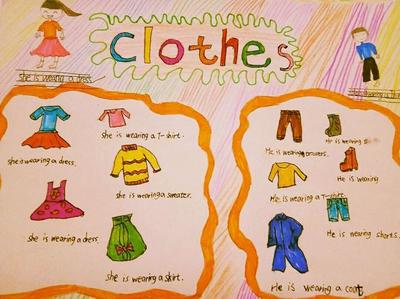 Clothes
she is wearing a dress.
she is wearing a T-shirt.
she is wearing a dress.
she is wearing a sweater.
she is wearing a dress.
she is wearing a skirt.
He is wearing
He is wearing trousers.
He is wearing
He is wearing a T-shirt.
He is wearing shorts.
He is wearing a coat.